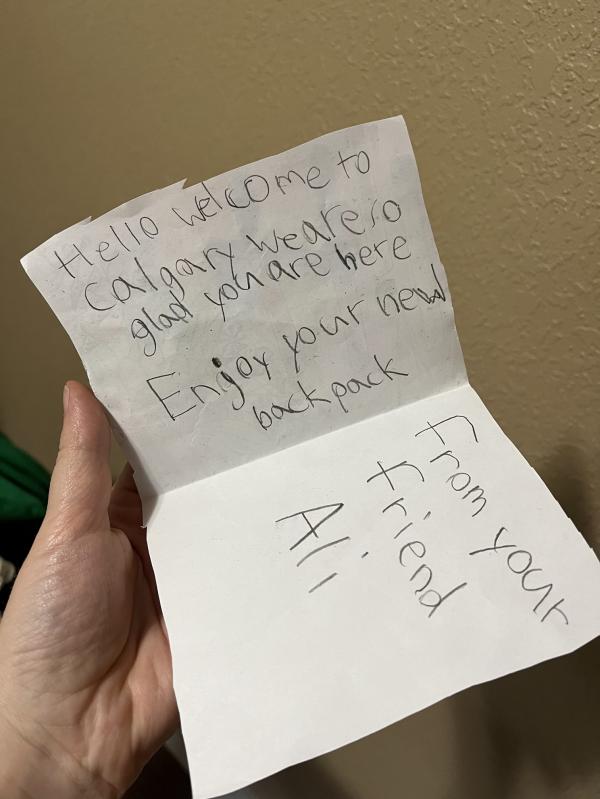 Hello welcome to
Calgary we are so
glad you are here
Enjoy your new
backpack
From your
Friend
Ali